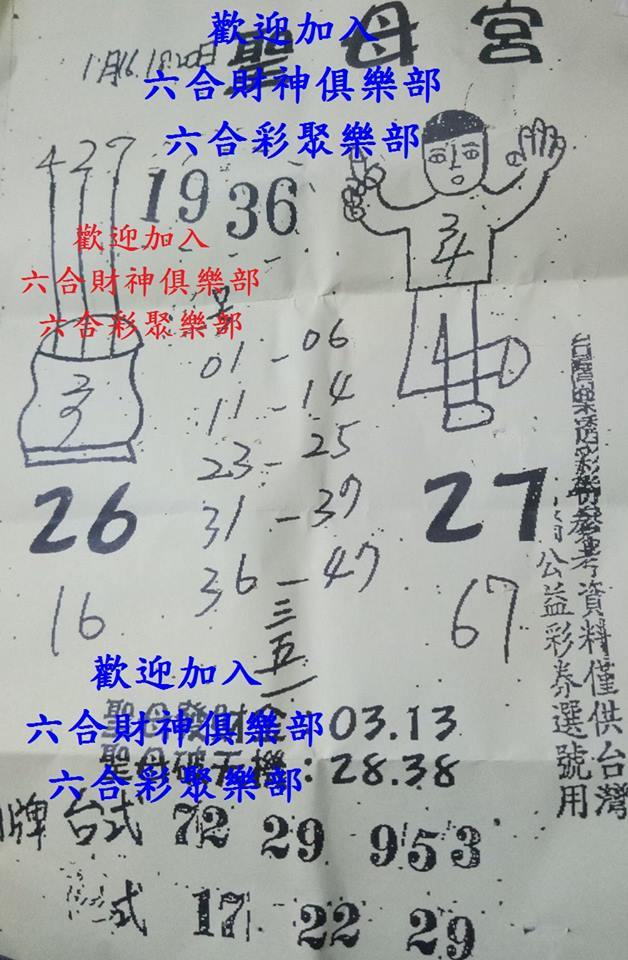 聖母宮
歡迎加入
六合財神俱樂部
六合彩聚樂部
1月16.18.20日
4 2 7
19 36
歡迎加入
六合財神俱樂部
六合彩聚樂部
34
01-06
11-14
23-25
31-37
36-47
三五
26
27
16
67
歡迎加入
六合財神俱樂部
六合彩聚樂部
03.13
聖母
天機:28.38
牌 台式 72 29 953
式 17 22 29
資料僅供台灣
公益彩券選號用